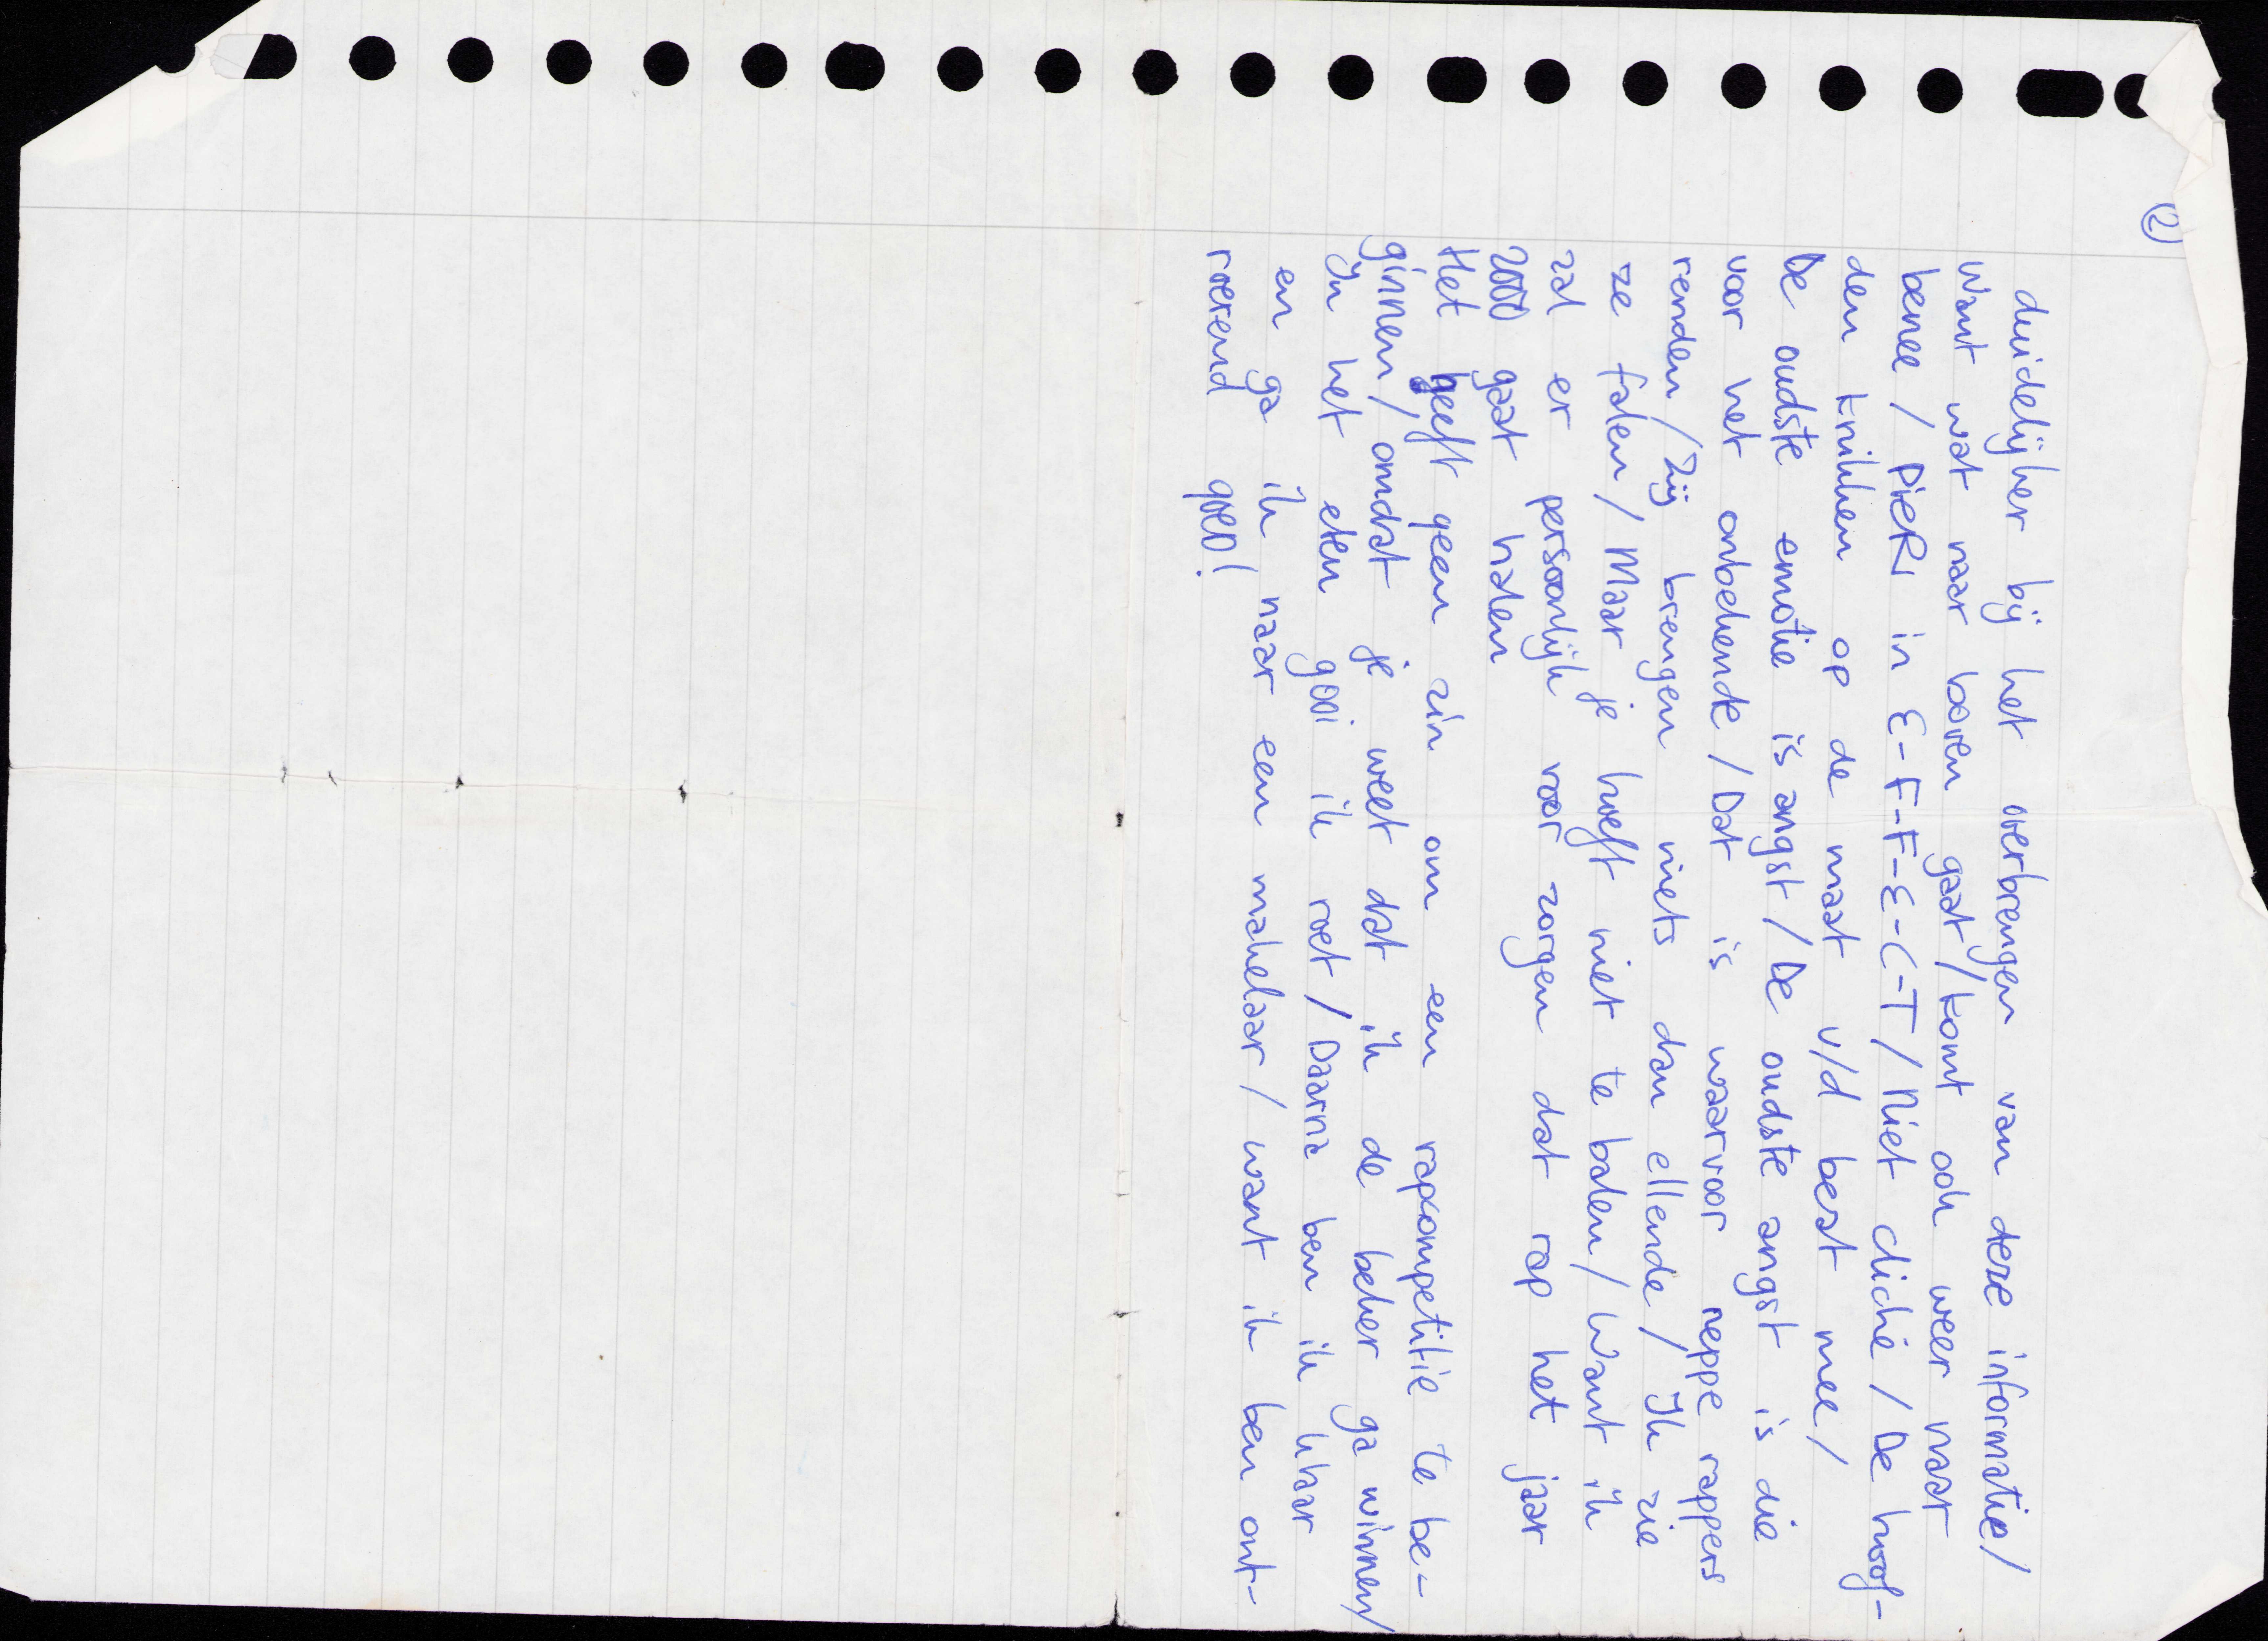 ②
duidelijker bij het overbrengen van deze informatie/
Want wat naar boven gaat/komt ook weer naar
benee / PieR1 in E-F-F-E-C-T / Niet cliché / De hoof-
den knikken op de maat v/d beat mee/
De oudste emotie is angst / De oudste angst is die
voor het onbekende / Dat is waarvoor neppe rappers
renden / Zij brengen niets dan ellende / Ik zie
ze falen / Maar je hoeft niet te balen / Want ik
zal er persoonlijk voor zorgen dat rap het jaar
2000 gaat halen
Het heeft geen zin om een rapcompetitie te be-
ginnen / omdat je weet dat ik de beker ga winnen/
In het eten gooi ik roet / Daarna ben ik klaar
en ga ik naar een makelaar / want ik ben ont-
roerend goed!